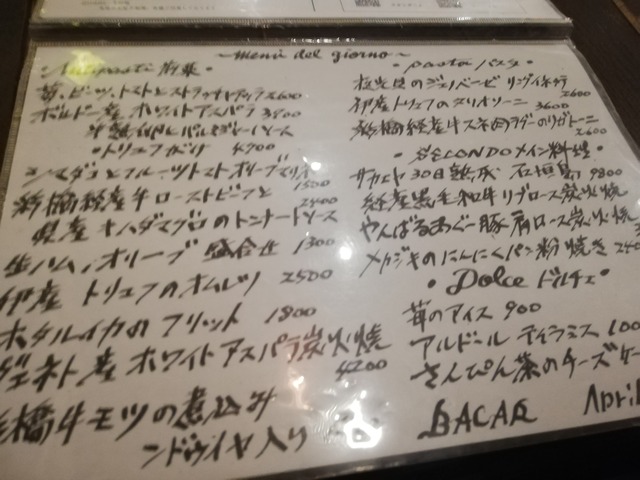 ~menu del giorno~
・Antipasti 前菜
苺、ビーツ、トマトとストラッチャテッラ 2600
ボルドー産 ホワイトアスパラ 3900
半熟卵とパルミジャーノソース
・トリュフがけ 4900
シマダコとフルーツトマト オリーブマリネ 1500
経産牛 ローストビーフと 2400
県産 キハダマグロのトンナートソース
生ハム、オリーブ 盛合せ 1300
印産 トリュフのオムレツ 2500
ホタルイカのフリット 1800
ヴェネト産 ホワイトアスパラ炭火焼 4200
橋牛モツの煮込み
ンドゥイヤ入り
・pasta パスタ
のジェノベーゼ リングイネ 2600
印産トリュフのタリオリーニ 3600
経産牛スネ肉ラグーのリガトーニ 2600
・SECONDO メイン料理
30日熟成 石垣島 9800
経産黒毛和牛リブロース炭火焼
やんばるあぐー豚肩ロース炭火焼
メカジキのにんにくパン粉焼き 240
・Dolce ドルチェ・
苺のアイス 900
アルドール ティラミス 100
さんぴん茶のチーズケー
BACAR April